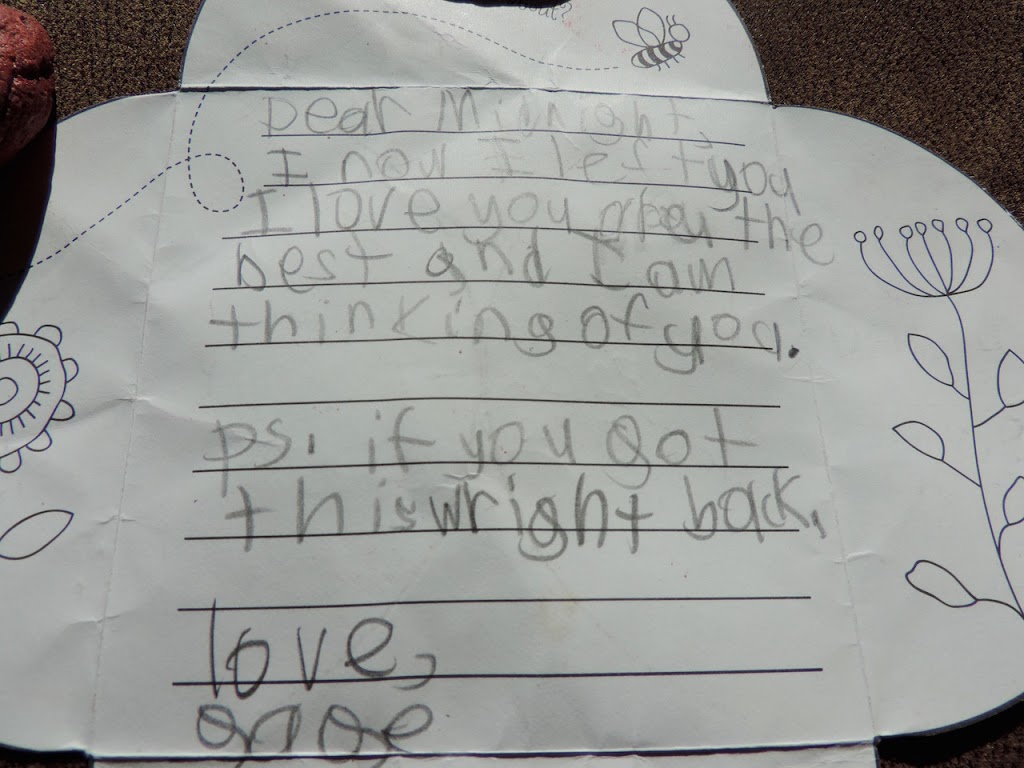 out?
Dear Midnight,
I now I left you
I love you the
best and I am
thinking of you.
ps. if you got
this wright back.
love,